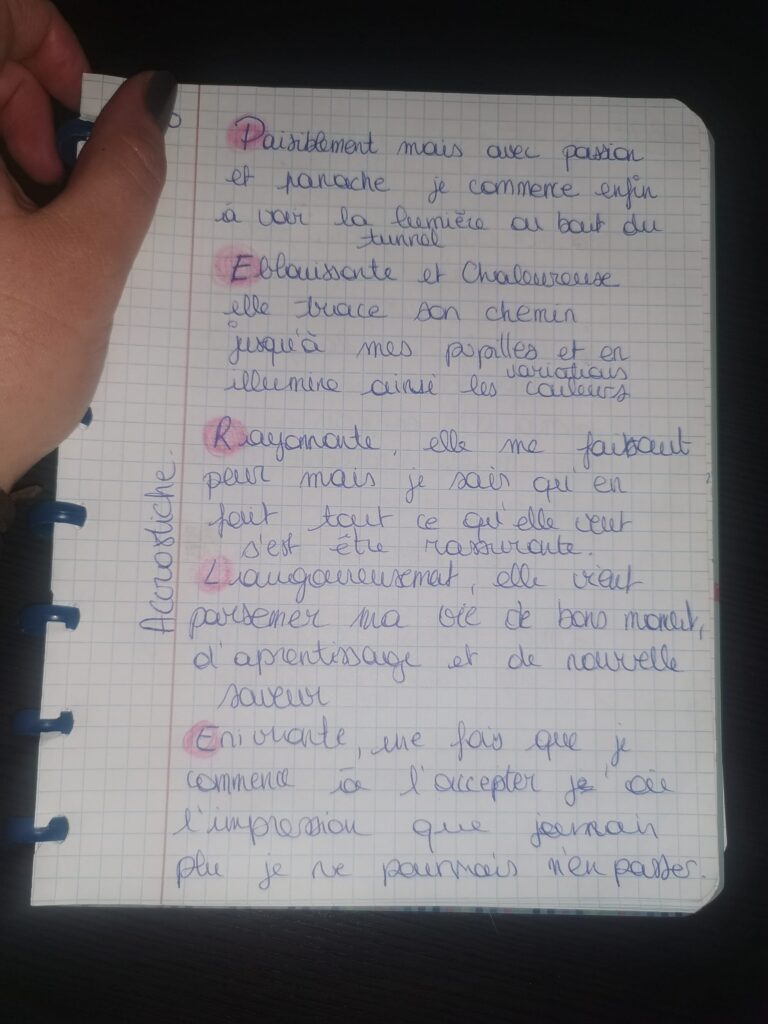 Accrostiche.
Paisiblement mais avec passion
et panache je commence enfin
à voir la lumière au bout du
tunnel
Eblouissante et Chaleureuse
elle trace son chemin
jusqu'à mes pupilles et en
variations
illumine ainsi les couleurs
Rayonnante, elle me faisaut
peur mais je sais qu'en
fait tout ce qu'elle veut
s'est être rassurante.
Langoureusemat, elle vient
parsemer ma vie de bons moment,
d'aprentissage et de nouvelle
saveur
Enivrante, une fois que je
commence à l'accepter je ai
l'impression que jamais
plu je ne pourrais m'en passer.